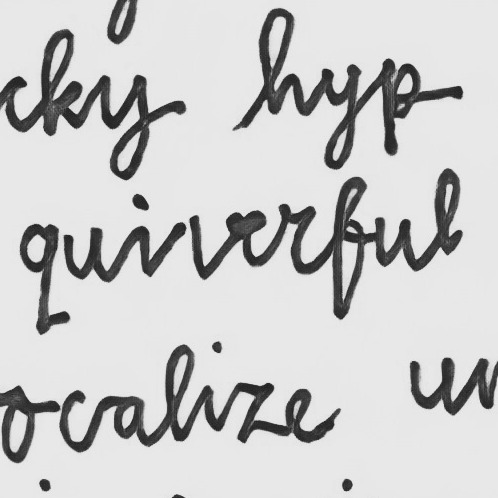 cky hyp
quiverful
ocalize un